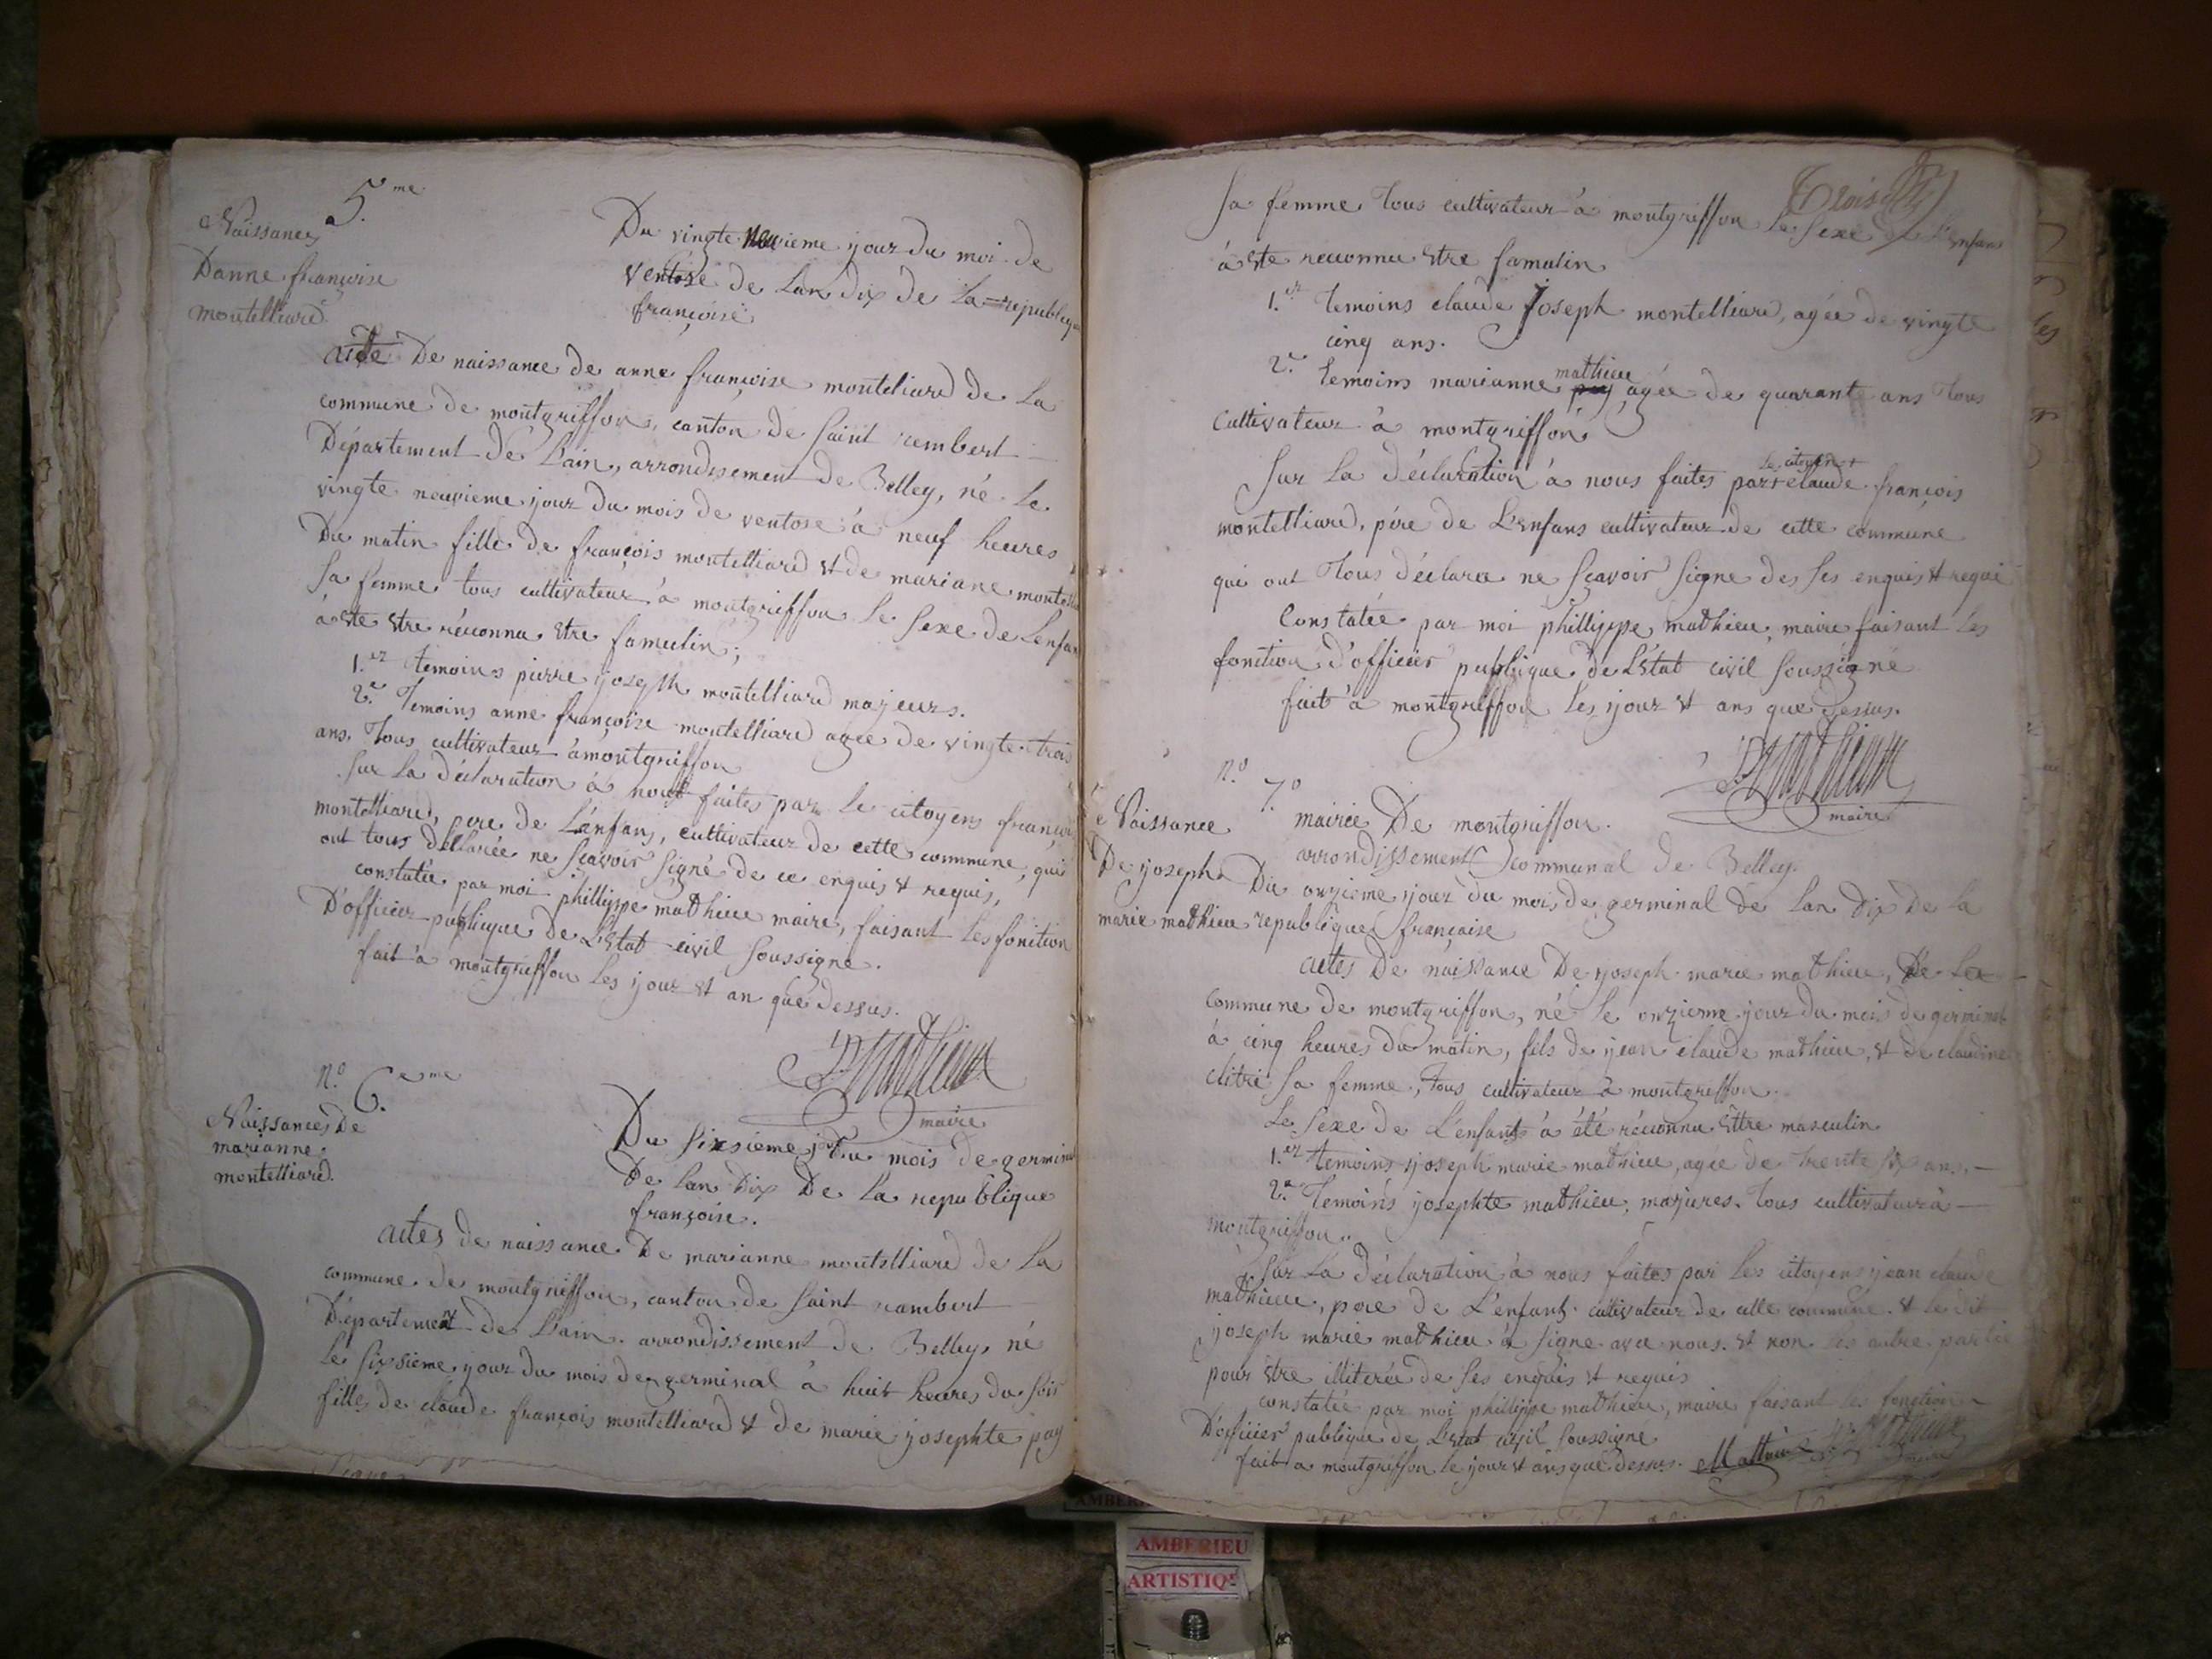 5.me
Naissances
Danne françoise
montelliard
Du vingte neuvieme jour du moi de
ventose de Lan dix de La republique
françoise
acte De naissance de anne françoise monteliard de La
commune de montgriffon, canton de saint rembert
Département de L'ain, arrondisement de Belley, né le
vingte neuvieme jour du mois de ventose à neuf heures
Du matin fille de françois montelliard et de mariane
sa femme tous cultivateur à montgriffon le sexe de Lenfan
à ete etre réconnu etre famulin;
1.er temoins pierre joseph montelliard majeurs.
2.e Temoins anne françoise montelliard agée de vingte trois
ans. Tous cultivateur àmontgriffon
Sur La déclaration à nous faites par le citoyens françois
montelliard, pere de L'enfans, cultivateur de cette commune, qui
ont tous déclarée ne sçavoir signé de ce enquis et requis,
constatée par moi phillippe mathieu maire, faisant les fonction
D'officier publique de L'Etat civil soussigne.
fait à montgriffon les jour et an que dessus.
maire
n.o 6.eme
Naissances De
marianne
montelliard.
Du sixsieme j. du mois de germinal
De lan Dix De la republique
françoise.
actes de naissance De marianne montelliard de La
commune de montgriffon, canton de saint rambert
Département de L'ain. arrondissement de Belley, né
le sixsieme jour du mois de germinal à huit heures du soir
filles de claude françois montelliard et de marie josephte pay
Trois
sa femme tous cultivateur à montgriffon le sexe de L'enfans
à ete reconnu etre famulin
1.er temoins claude joseph montelliard, agée de vingte
cinq ans.
mathieu
2.e temoins marianne pay agée de quarant ans tous
cultivateur à montgriffon
le citoyen +
Sur La déclaration à nous faites par + claude françois
montelliard, pére de L'enfans cultivateur de cette commune
qui ont tous déclarée ne sçavoir signe des ses enquis et requi
Constatée par moi phillippe mathieu, maire faisant les
fonction d'officier publique de L'Etat civil soussigné
fait à montgriffon les jour et ans que dessus.
maire
n.o 7.o
Naissance
De joseph
marie mathieu
mairie De montgriffon.
arrondissement communal de Belley.
Du onzieme jour du mois de germinal de Lan dix de La
republique française
actes De naissance De joseph marie mathieu, De La
commune de montgriffon, né le onzieme jour du mois de germinal
à cinq heures du matin, fils de jean claude mathieu, et de claudine
clitre sa femme, tous cultivateur à montgriffon.
Le sexe de L'enfant à été réconnu èttre masculin
1.er temoins joseph marie mathieu, agée de trente six ans.
2.e Temoins josephte mathieu, majures. tous cultivateur à
montgriffon..
Sur La déclaration à nous faites par les citoyens jean claude
mathieu, pere de L'enfant cultivateur de cette commune. et le dit
joseph marie mathieu à signe avec nous. et non les autre partie
pour etre illiterée de ses enquis et requis
constatée par moi phillippe mathieu, maire faisant les fonction
D'officier publique de L'etat civil soussigne
fait à montgriffon le jour et ans que dessus. Mathieu
AMBERIEU
ARTISTIQ